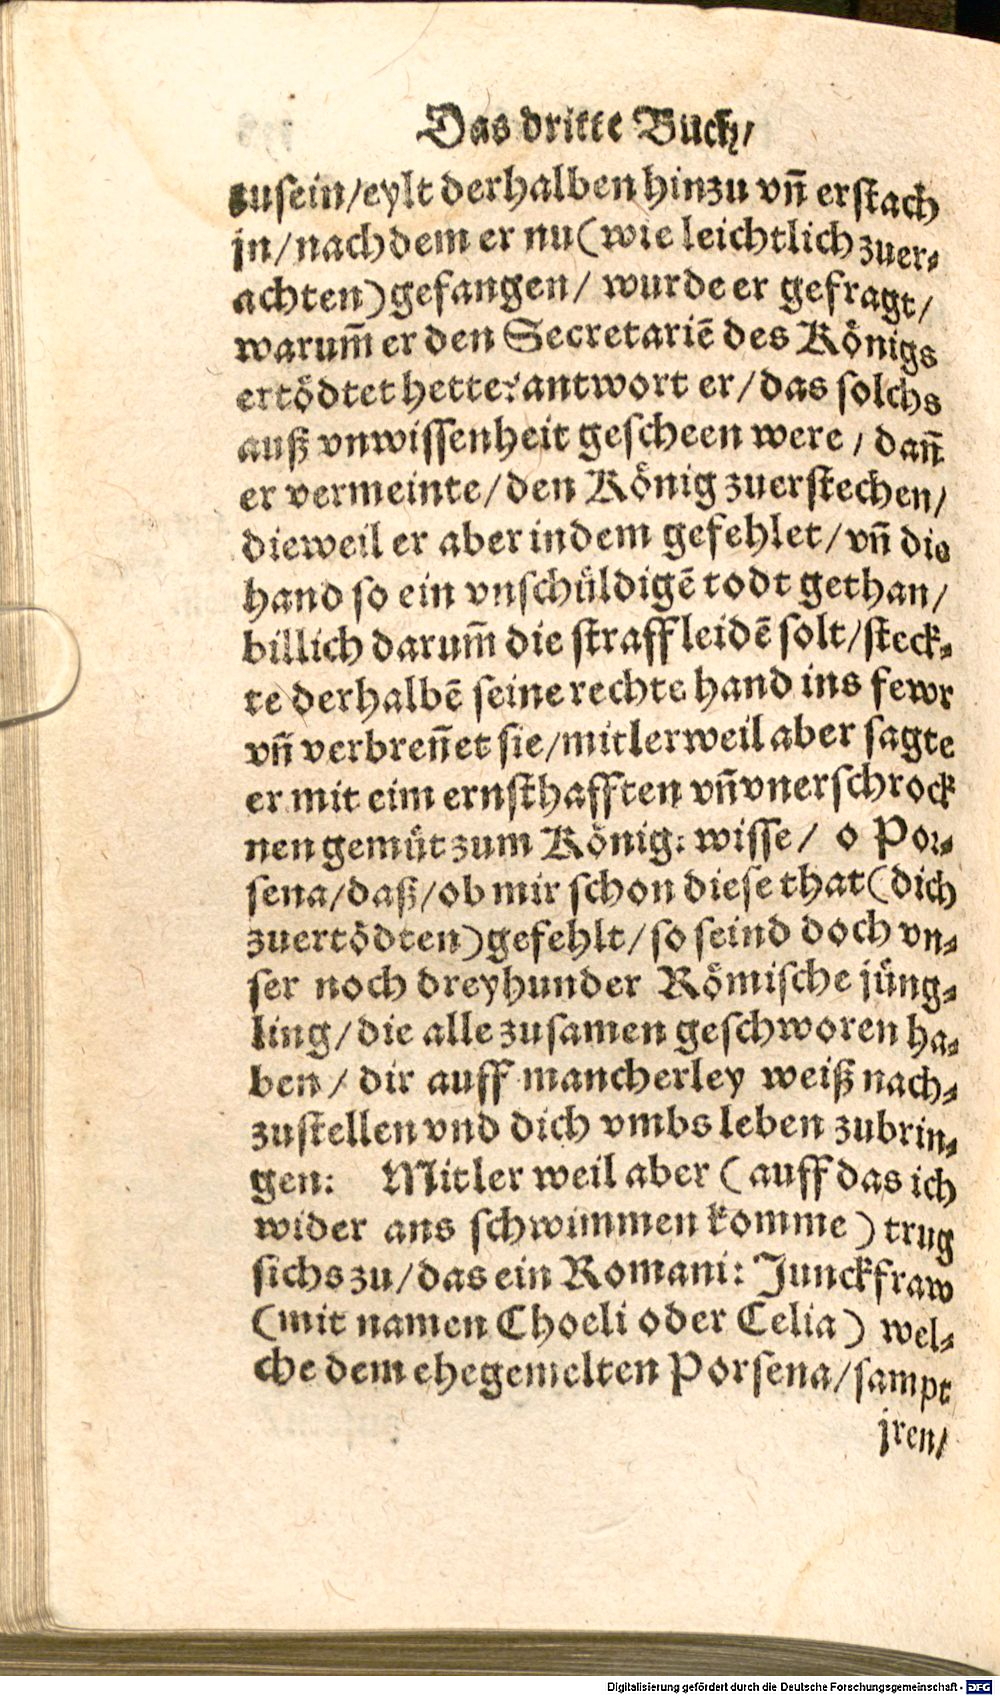 Das dritte Buch/
zusein/eylt derhalben hinzu vñ erstach
jn/nach dem er nu(wie leichtlich zuer-
achten)gefangen/ wurde er gefragt/
warum̃ er den Secretariẽ des Königs
ertödtet hette: antwort er/das solchs
auß vnwissenheit gescheen were/ dañ
er vermeinte/den König zuerstechen/
dieweil er aber indem gefehlet/vñ die
hand so ein vnschüldigẽ todt gethan/
billich darum̃ die straff leidẽ solt/steck-
te derhalbẽ seine rechte hand ins fewr
vñ verbreñet sie/mitlerweil aber sagte
er mit eim ernsthafften vñ vnerschrock
nen gemüt zum König: wisse/ o Por-
sena/daß/ob mir schon diese that(dich
zuertödten)gefehlt/so seind doch vn-
ser noch dreyhunder Römische jüng-
ling/die alle zusamen geschworen ha-
ben/ dir auff mancherley weiß nach-
zustellen vnd dich vmbs leben zubrin-
gen: Mitler weil aber (auff das ich
wider ans schwimmen komme) trug
sichs zu/das ein Romani: Junckfraw
(mit namen Choeli oder Celia) wel-
che dem ehegemelten Porsena/sampt
jren/
Digitalisierung gefördert durch die Deutsche Forschungsgemeinschaft - DFG